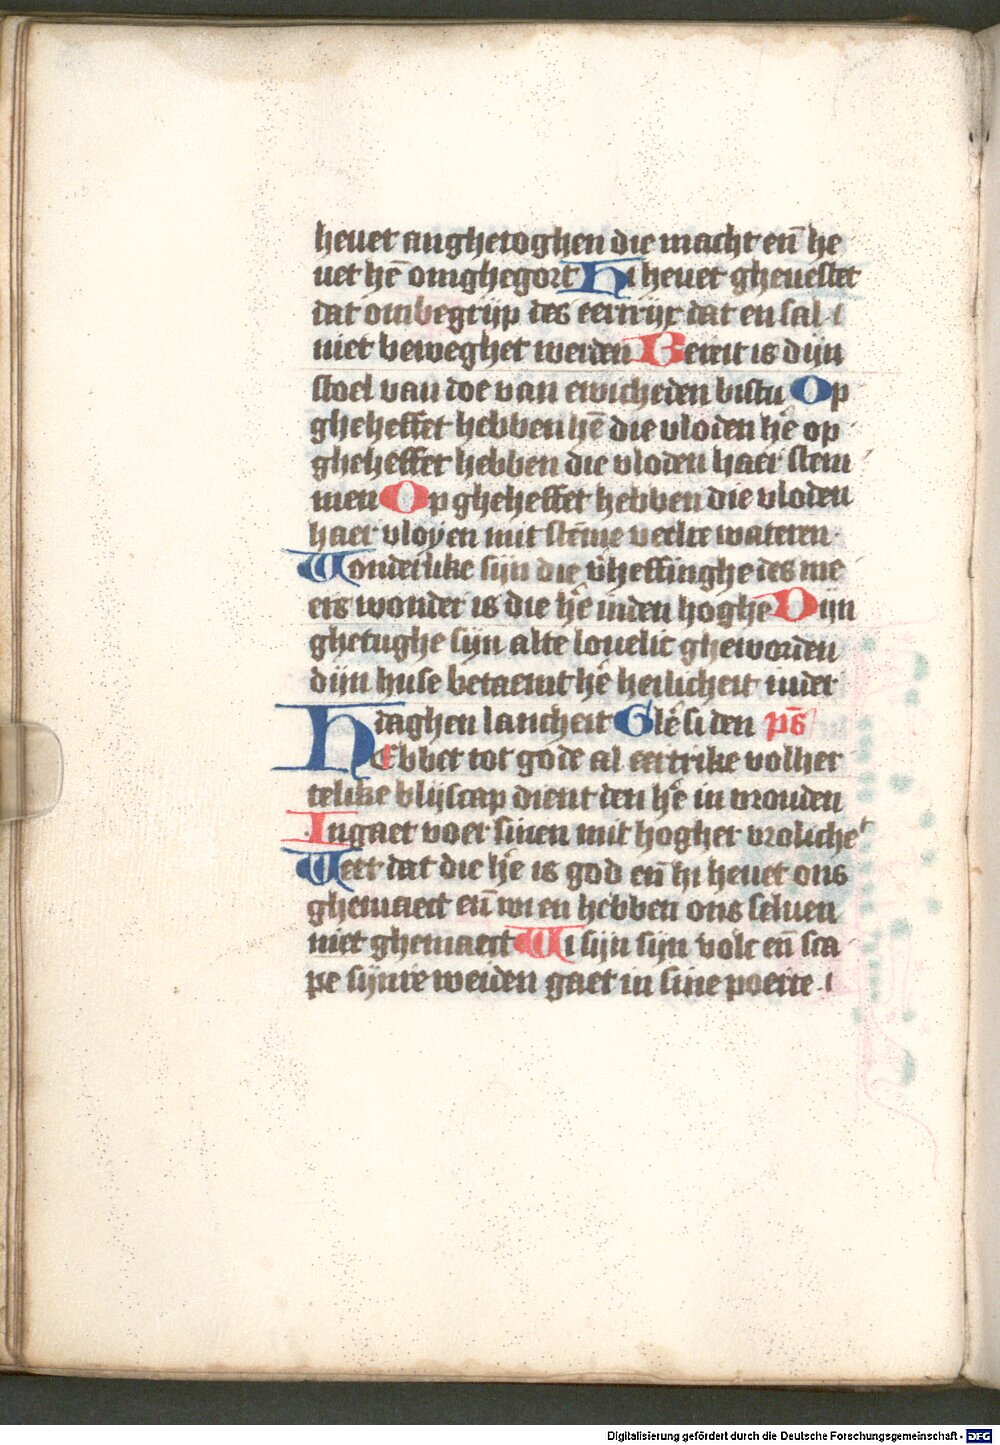 heuet anghetoghen die macht en̄ he
uet hē omghegort Hi heuet gheuestet
dat ombegrijp des eertrijx dat en sal
niet beweghet werden Bereit is dijn
stoel van doe van ewicheden bistu Op
gheheffet hebben hē die vloden hē op
gheheffet hebben die vloden haer stem
men Op gheheffet hebben die vloden
haer vloyen mit stēme veelre wateren
Wonderlike sijn die v̄heffinghe des me
ers wonder is die hē inden hoghe Dijn
ghetughe sijn alte louelic gheworden
dijn huse betaemt hē heilicheit inder
daghen lancheit Glē si den ps̄
Hebbet tot gode al eertrike volher
telike blijscap dient den hē in vrouden
Ingaet voer sinen mit hogher vroliche
Weet dat die hē is god en̄ hi heuet ons
ghemaect en̄ wi en hebben ons seluen
niet ghemaect Wi sijn sijn volc en̄ sca
pe sijnre weiden gaet in sine poerte
Digitalisierung gefördert durch die Deutsche Forschungsgemeinschaft - DFG